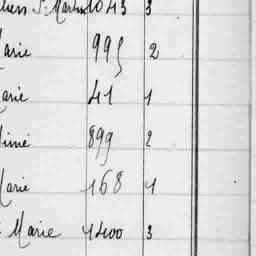 S. Martin 1043 3
Marie 995 2
Marie 41 1
Aimé 899 2
Marie 168 1
Marie 1400 3